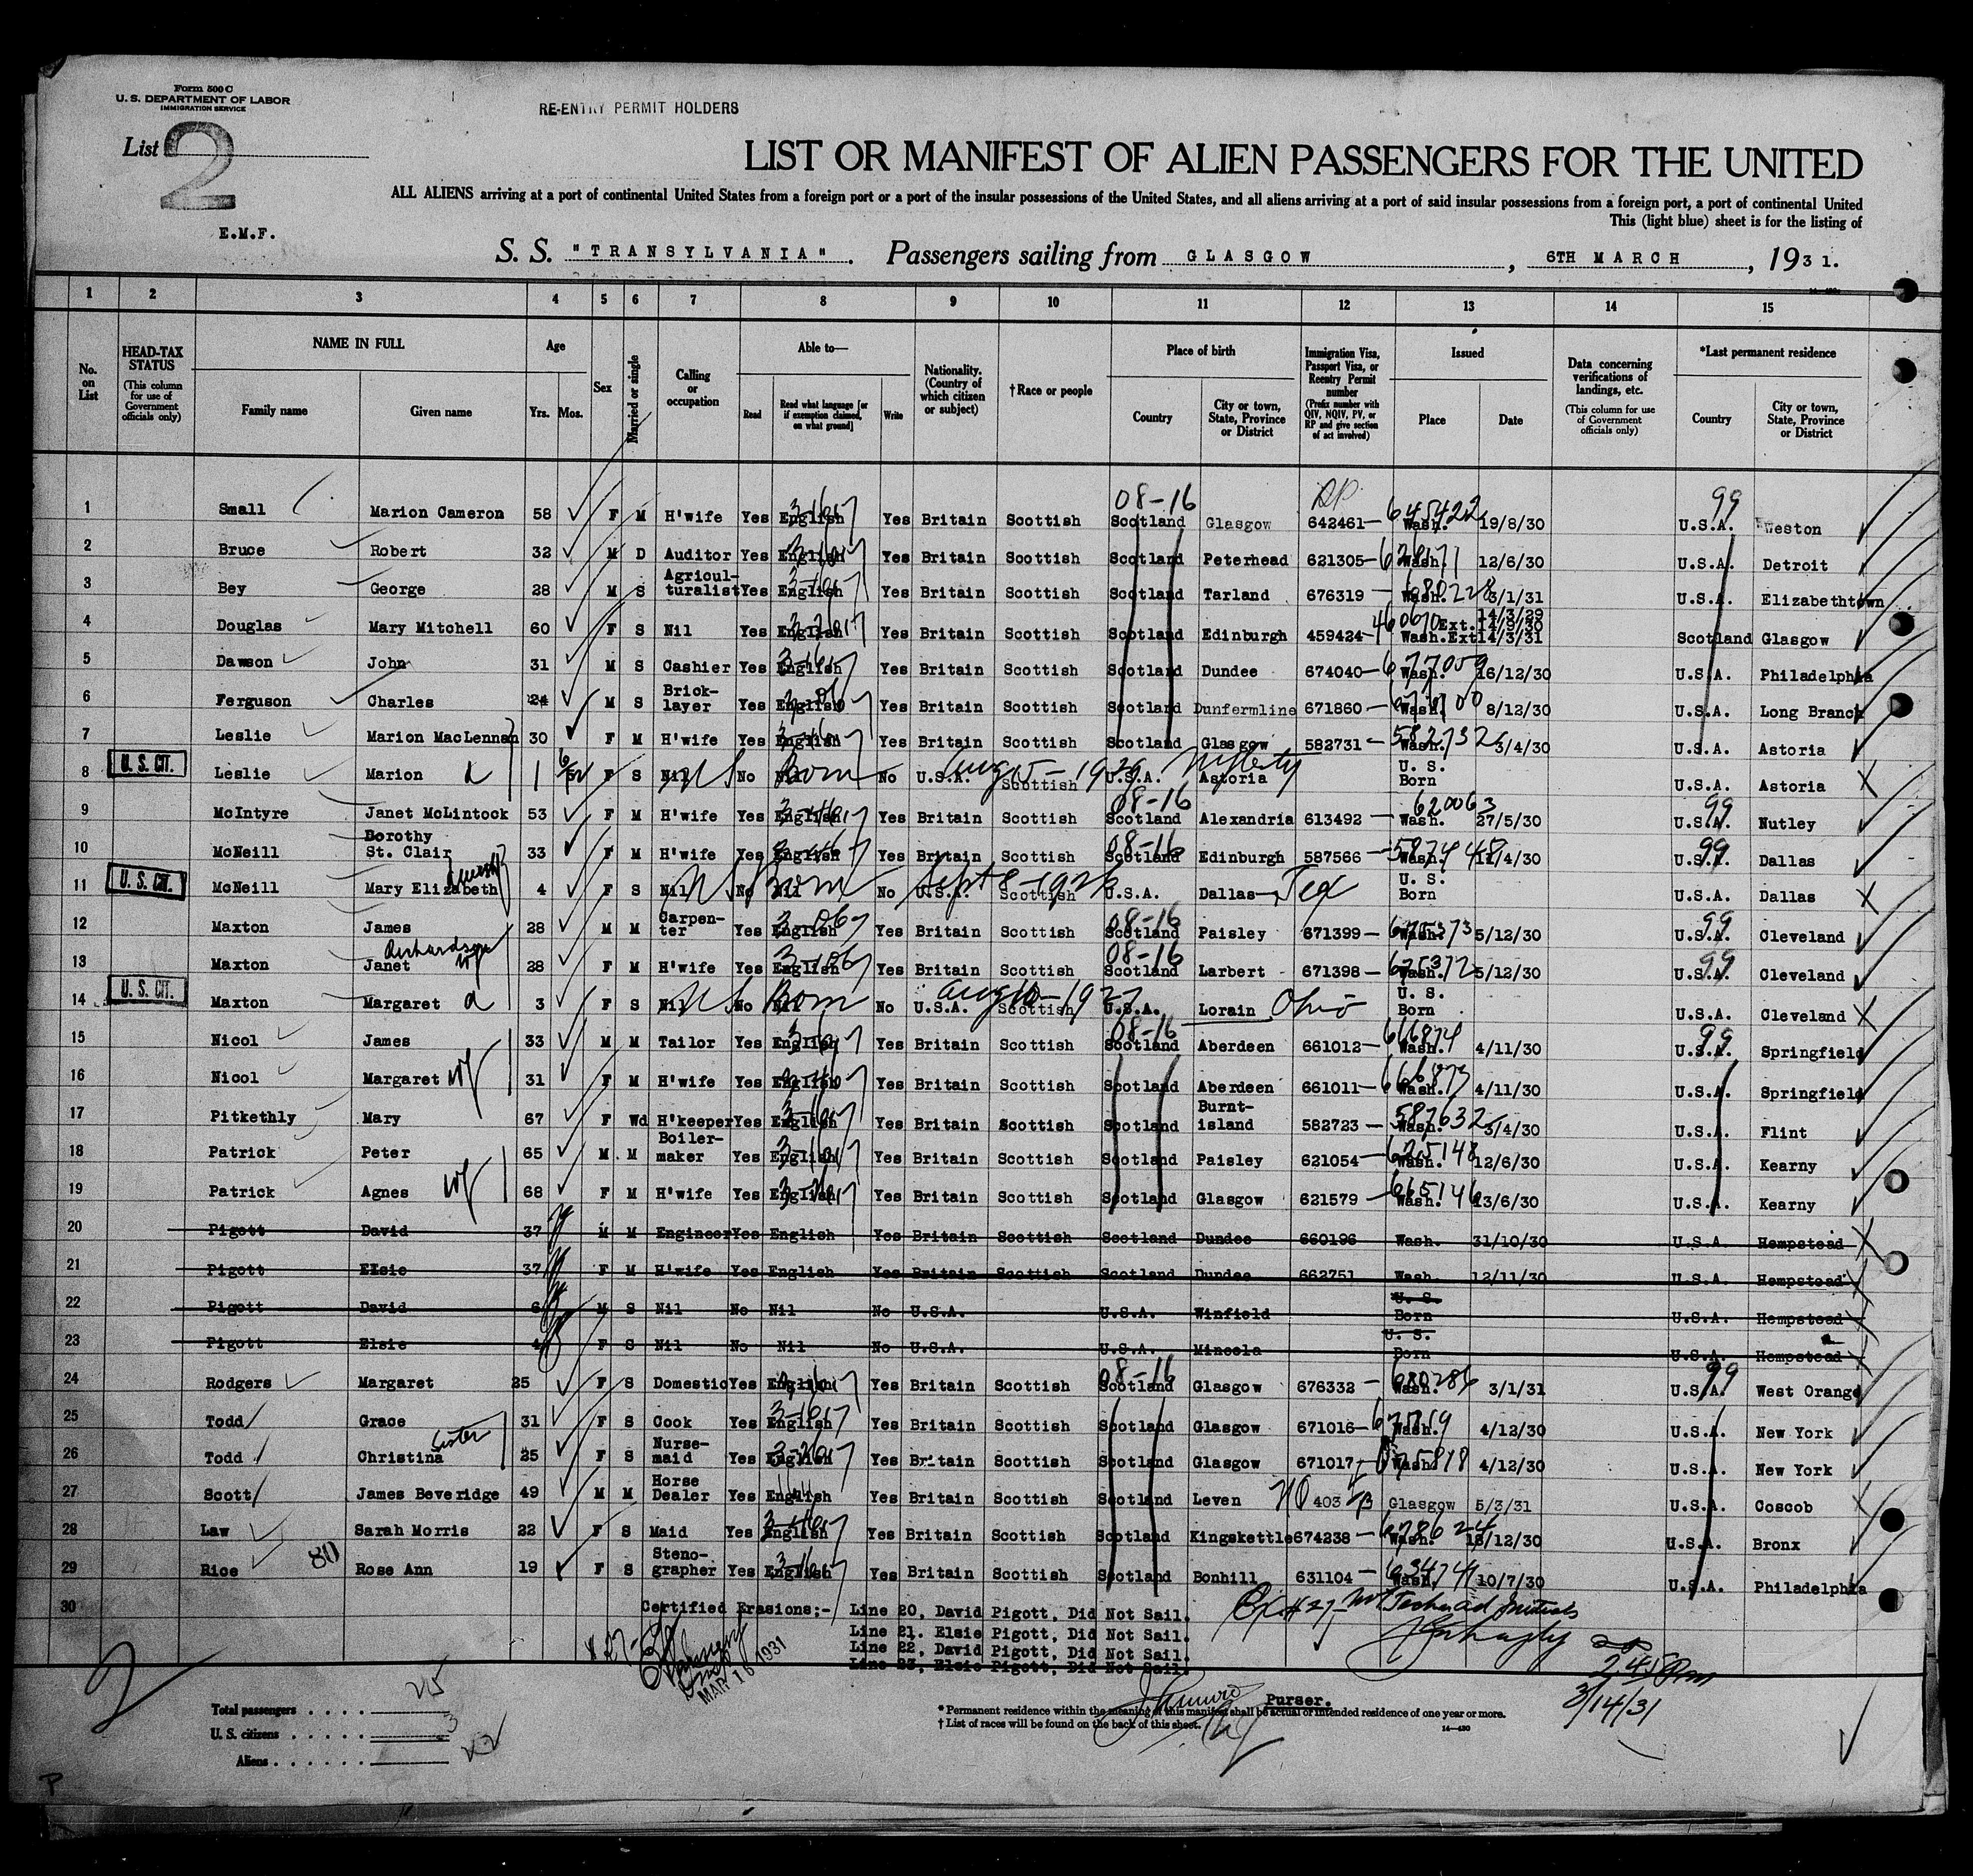 Form 500 C
U. S. DEPARTMENT OF LABOR
IMMIGRATION SERVICE
RE-ENTRY PERMIT HOLDERS
List 2
LIST OR MANIFEST OF ALIEN PASSENGERS FOR THE UNITED
ALL ALIENS arriving at a port of continental United States from a foreign port or a port of the insular possessions of the United States, and all aliens arriving at a port of said insular possessions from a foreign port, a port of continental United
This (light blue) sheet is for the listing of
E.M.F.
S. S. "TRANSYLVANIA". Passengers sailing from GLASGOW, 6TH MARCH, 1931.
1 2 3 4 5 6 7 8 9 10 11 12 13 14 15
No. on List
HEAD-TAX STATUS (This column for use of Government officials only)
NAME IN FULL Family name Given name
Age Yrs. Mos.
Sex
Married or single
Calling or occupation
Able to— Read Read what language [or if exemption claimed, on what ground] Write
Nationality. (Country of which citizen or subject)
†Race or people
Place of birth Country City or town, State, Province or District
Immigration Visa, Passport Visa, or Reentry Permit number (Prefix number with QIV, NQIV, PV, or RP and give section of act involved)
Issued Place Date
Data concerning verifications of landings, etc. (This column for use of Government officials only)
*Last permanent residence Country City or town, State, Province or District
08-16 RP 99
1 Small Marion Cameron 58 F M H'wife Yes English Yes Britain Scottish Scotland Glasgow 642461 645422 Wash. 19/8/30 U.S.A. Weston
2 Bruce Robert 32 M D Auditor Yes English Yes Britain Scottish Scotland Peterhead 621305 Wash. 12/6/30 U.S.A. Detroit
3 Bey George 28 M S Agricul-turalist Yes English Yes Britain Scottish Scotland Tarland 676319 680228 Wash. 3/1/31 U.S.A. Elizabethtown
4 Douglas Mary Mitchell 60 F S Nil Yes English Yes Britain Scottish Scotland Edinburgh 459424 460670 14/3/29 Ext. 14/3/30 Wash. Ext 14/3/31 Scotland Glasgow
5 Dawson John 31 M S Cashier Yes English Yes Britain Scottish Scotland Dundee 674040 677059 Wash. 16/12/30 U.S.A. Philadelphia
6 Ferguson Charles 24 M S Brick-layer Yes English Yes Britain Scottish Scotland Dunfermline 671860 Wash. 8/12/30 U.S.A. Long Branch
7 Leslie Marion MacLennan 30 F M H'wife Yes English Yes Britain Scottish Scotland Glasgow 582731 Wash. 3/4/30 U.S.A. Astoria
U. S. CIT.
8 Leslie Marion 1 F S Nil US No Born No U.S.A. Scottish Aug 15-1929 U.S.A. Astoria U. S. Born U.S.A. Astoria
08-16 99
9 McIntyre Janet McLintock 53 F M H'wife Yes English Yes Britain Scottish Scotland Alexandria 613492 620063 Wash. 27/5/30 U.S.A. Nutley
10 McNeill Dorothy St. Clair 33 F M H'wife Yes English Yes Britain Scottish 08-16 Scotland Edinburgh 587566 Wash. 11/4/30 99 U.S.A. Dallas
U. S. CIT.
11 McNeill Mary Elizabeth 4 F S Nil US No Nil Born No U.S.A. Scottish U.S.A. Dallas Tex U. S. Born U.S.A. Dallas
12 Maxton James 28 M M Carpen-ter Yes English Yes Britain Scottish 08-16 Scotland Paisley 671399 675373 Wash. 5/12/30 99 U.S.A. Cleveland
13 Maxton Janet Richardson wf 28 F M H'wife Yes English Yes Britain Scottish 08-16 Scotland Larbert 671398 675372 Wash. 5/12/30 99 U.S.A. Cleveland
U. S. CIT.
14 Maxton Margaret 3 F S Nil US No Nil Born No U.S.A. Scottish Aug 10-1927 U.S.A. Lorain Ohio U. S. Born U.S.A. Cleveland
15 Nicol James 33 M M Tailor Yes English Yes Britain Scottish 08-16 Scotland Aberdeen 661012 666874 Wash. 4/11/30 99 U.S.A. Springfield
16 Nicol Margaret wf 31 F M H'wife Yes English Yes Britain Scottish Scotland Aberdeen 661011 666873 Wash. 4/11/30 U.S.A. Springfield
17 Pitkethly Mary 67 F Wd H'keeper Yes English Yes Britain Scottish Scotland Burnt-island 582723 587632 Wash. 3/4/30 U.S.A. Flint
18 Patrick Peter 65 M M Boiler-maker Yes English Yes Britain Scottish Scotland Paisley 621054 625148 Wash. 12/6/30 U.S.A. Kearny
19 Patrick Agnes wf 68 F M H'wife Yes English Yes Britain Scottish Scotland Glasgow 621579 Wash. 13/6/30 U.S.A. Kearny
20 Pigott David 37 M M Engineer Yes English Yes Britain Scottish Scotland Dundee 660196 Wash. 31/10/30 U.S.A. Hempstead
21 Pigott Elsie 37 F M H'wife Yes English Yes Britain Scottish Scotland Dundee 662751 Wash. 12/11/30 U.S.A. Hempstead
22 Pigott David 6 M S Nil No Nil No U.S.A. U.S.A. Winfield U. S. Born U.S.A. Hempstead
23 Pigott Elsie 4 F S Nil No Nil No U.S.A. U.S.A. Mineola U. S. Born U.S.A. Hempstead
24 Rodgers Margaret 25 F S Domestic Yes English Yes Britain Scottish 08-16 Scotland Glasgow 676332 680286 Wash. 3/1/31 99 U.S.A. West Orange
25 Todd Grace 31 F S Cook Yes English Yes Britain Scottish Scotland Glasgow 671016 Wash. 4/12/30 U.S.A. New York
26 Todd Christina Sister 25 F S Nurse-maid Yes English Yes Britain Scottish Scotland Glasgow 671017 Wash. 4/12/30 U.S.A. New York
27 Scott James Beveridge 49 M M Horse Dealer Yes English Yes Britain Scottish Scotland Leven 403 Glasgow 5/3/31 U.S.A. Coscob
28 Law Sarah Morris 22 F S Maid Yes English Yes Britain Scottish Scotland Kingskettle 674238 678624 Wash. 18/12/30 U.S.A. Bronx
29 Rice 80 Rose Ann 19 F S Steno-grapher Yes English Yes Britain Scottish Scotland Bonhill 631104 634741 Wash. 10/7/30 U.S.A. Philadelphia
30 Certified Erasions:- Line 20, David Pigott, Did Not Sail.
Line 21. Elsie Pigott, Did Not Sail.
Line 22, David Pigott, Did Not Sail.
Line 23, Elsie Pigott, Did Not Sail.
MAR 16 1931
2
2 45 Pm
3/14/31
Purser.
Total passengers 25
U. S. citizens 3
Aliens 22
* Permanent residence within the meaning of this manifest shall be actual or intended residence of one year or more.
† List of races will be found on the back of this sheet.
14—430
P